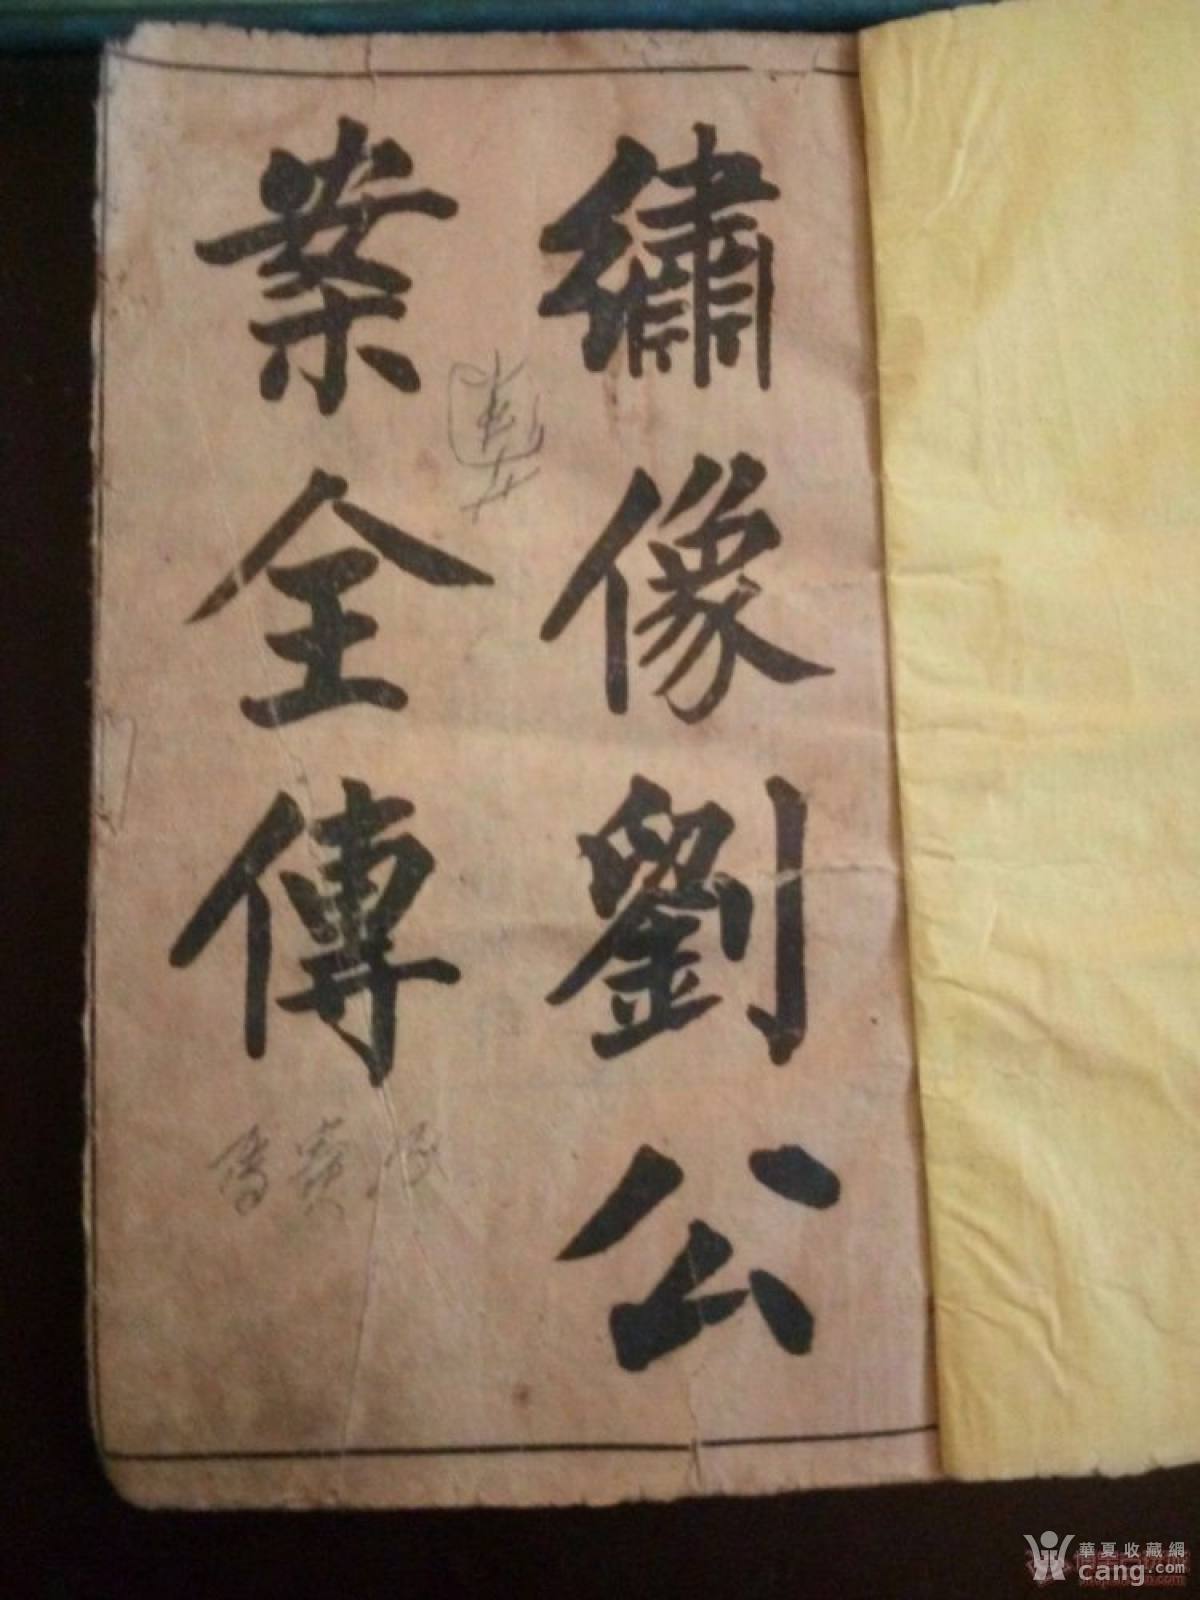 繡像劉公
案全傳
華夏收藏網
cang.com